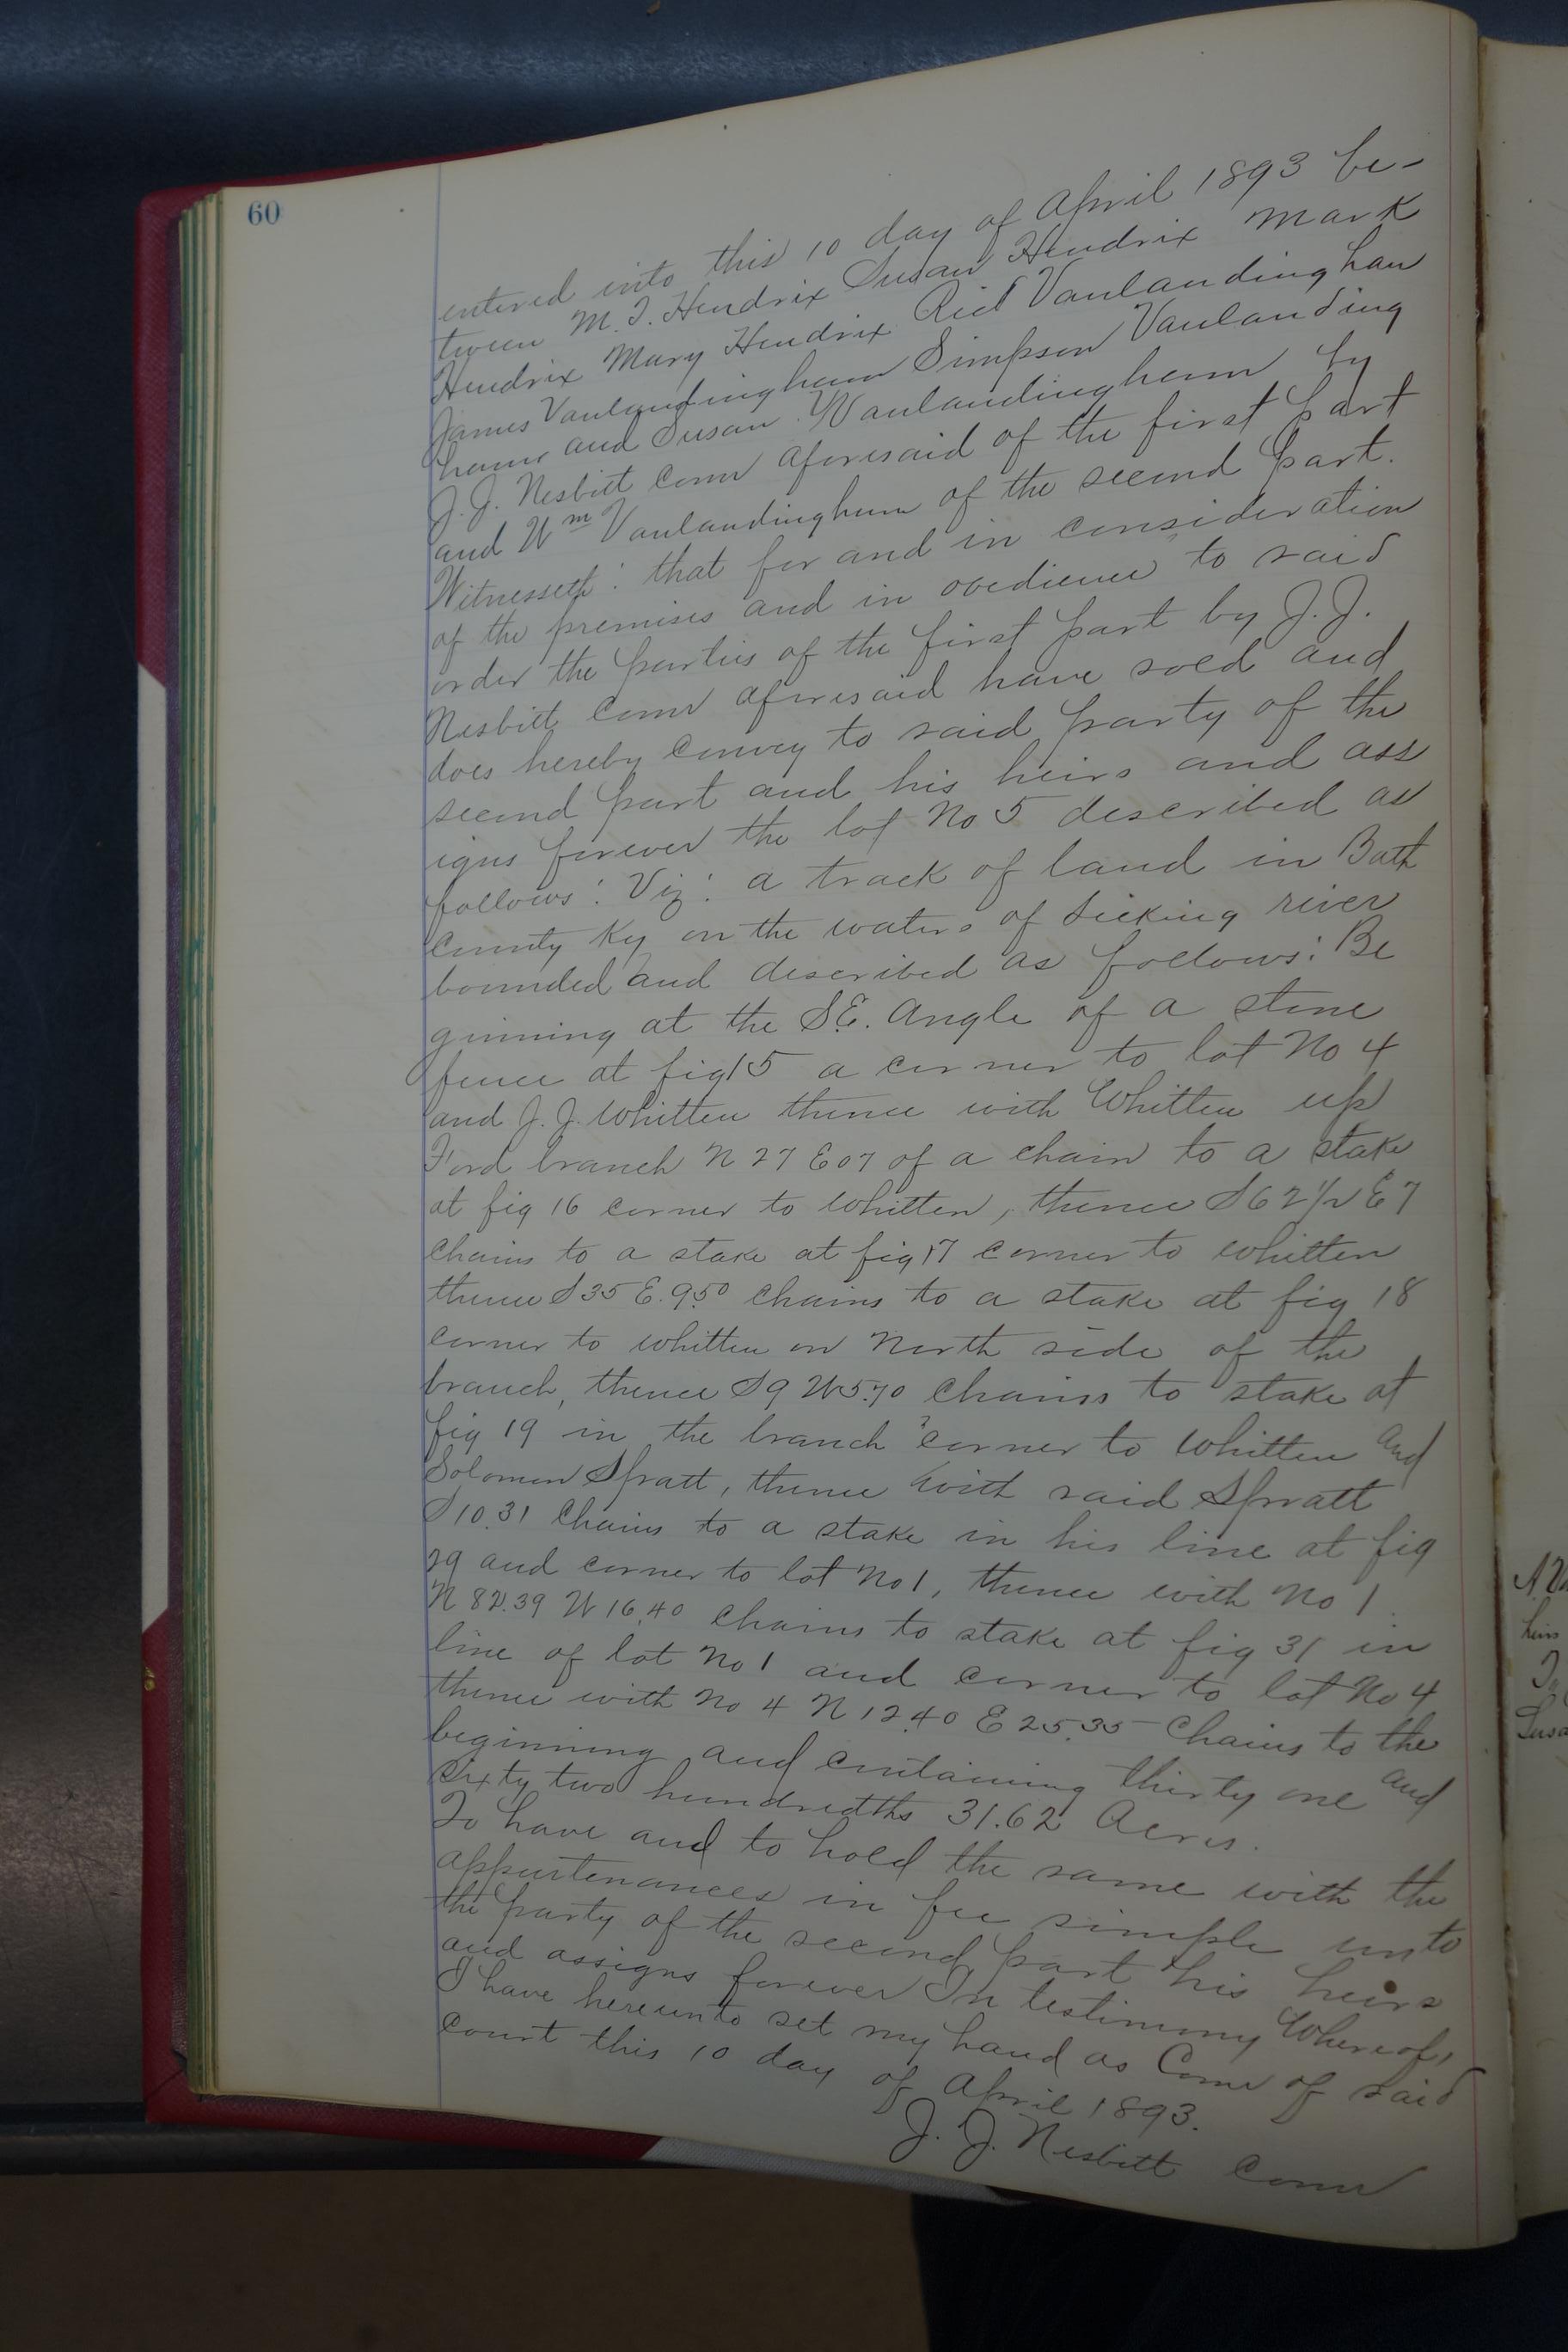 60
entered into this 10 day of April 1893 be-
tween M. T. Hendrix Susan Hendrix Mark
Hendrix Mary Hendrix Rid Vanlandinghan
James Vanlandingham Simpson Vanlanding
ham and Susan Vanlandingham by
J. J. Nesbitt Comr aforesaid of the first part
and Wm Vanlandingham of the second part.
Witnesseth: that for and in consideration
of the premises and in obedience to said
order the parties of the first part by J. J.
Nesbitt Comr aforesaid have sold and
does hereby convey to said party of the
second part and his heirs and ass
igns forever the lot No 5 described as
follows: Viz: a track of land in Bath
County Ky on the waters of Licking river
bounded and described as follows: Be
ginning at the S.E. Angle of a stone
fence at fig 15 a corner to lot No 4
and J. J. Whitten thence with Whitten up
Ford branch N 27 E 07 of a chain to a stake
at fig 16 corner to Whitten, thence S 62 1/2 E 7
chains to a stake at fig 17 corner to Whitten
thence S 35 E. 9.50 chains to a stake at fig 18
corner to Whitten on North side of the
branch, thence S 9 W 5.70 chains to stake at
fig 19 in the branch corner to Whitten and
Solomon Spratt, thence with said Spratt
S 10.31 chains to a stake in his line at fig
29 and corner to lot No 1, thence with No 1
N 82.39 W 16.40 chains to stake at fig 31 in
line of lot No 1 and corner to lot No 4
thence with No 4 N 12.40 E 25.35 chains to the
beginning and containing thirty one and
Sixty two hundredths 31.62 Acres.
To have and to hold the same with the
appurtenances in fee simple unto
the party of the second part his heirs
and assigns forever In testimony Whereof,
I have hereunto set my hand as Comr of said
Court this 10 day of April 1893.
J. J. Nesbitt Comr
heirs